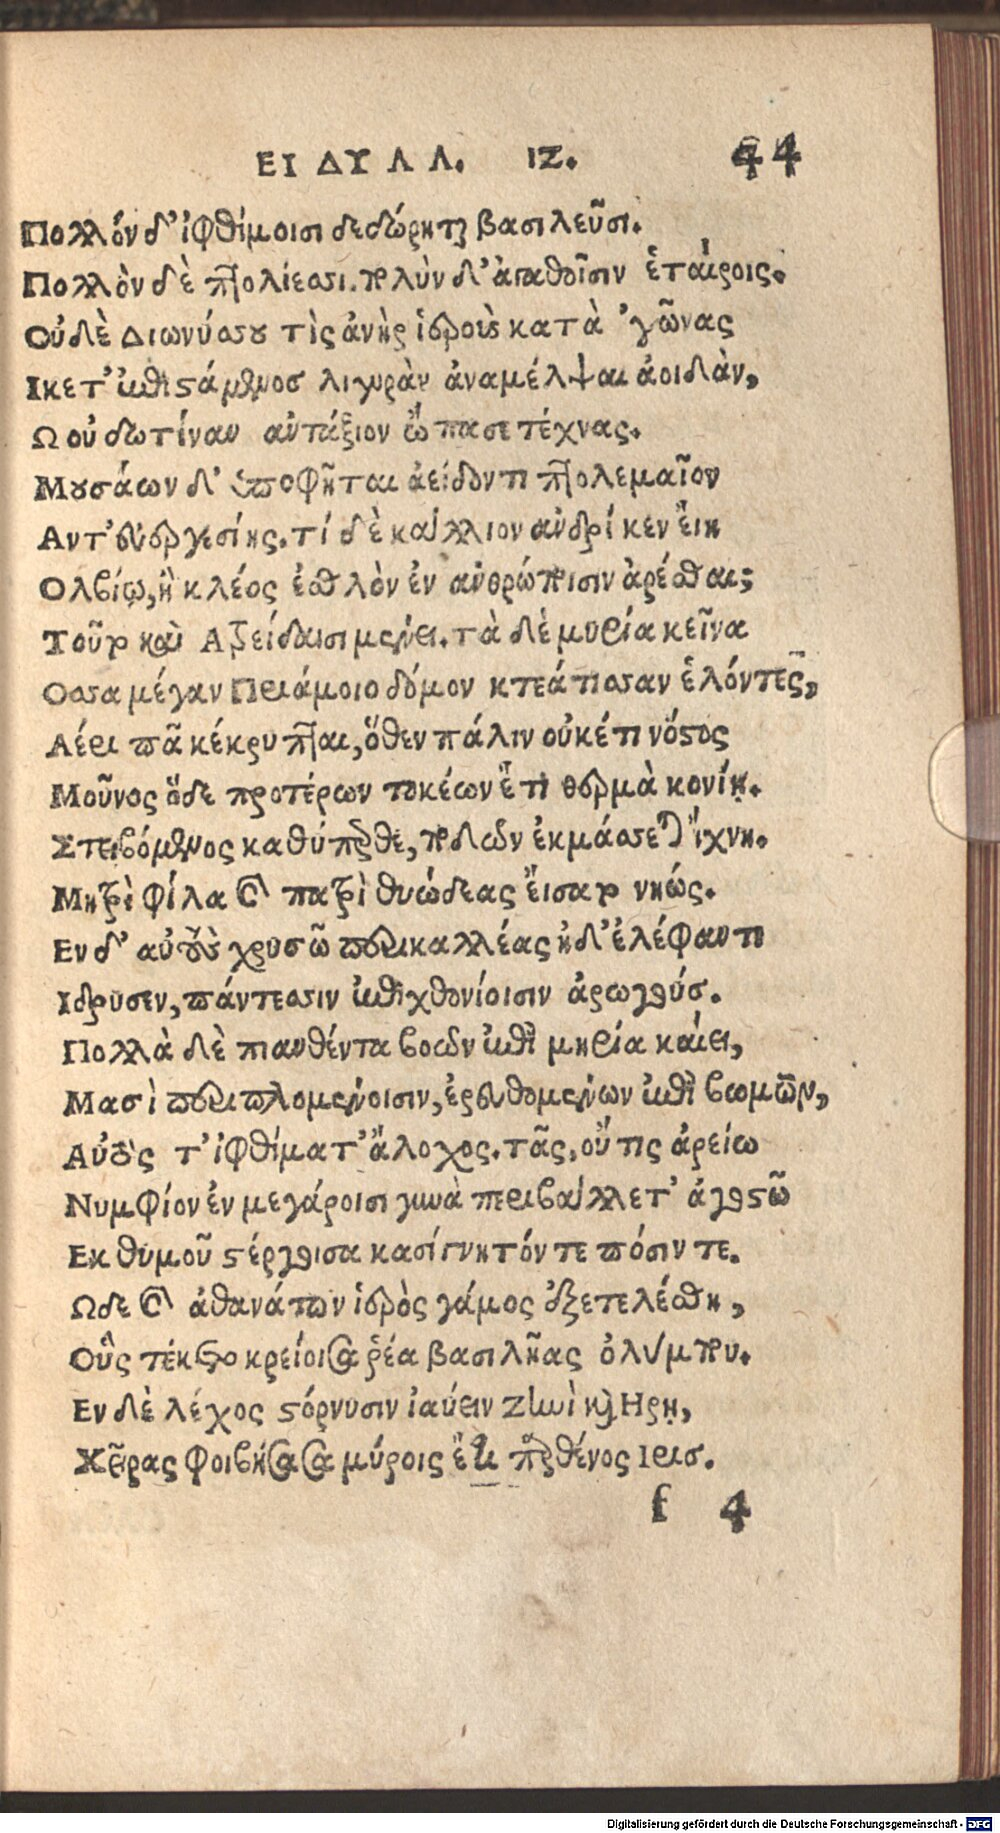 ΕΙΔΥΛΛ. ΙΖ. 44
Πολλόν δ' ἰφθίμοισι δεδώρηται βασιλεῦσι.
Πολλὸν δὲ πτολίεσσι. πολὺν δ' ἀγαθοῖσιν ἑταίροις.
Οὐδὲ Διωνύσου τὶς ἀνὴρ ἱεροὺς κατὰ 'γῶνας
Ικετ' ἐπιστάμενοσ λιγυρὰν ἀναμέλψαι ἀοιδὰν,
Ω οὐ δωτίναν αὐτάξιον ὤπασε τέχνας.
Μουσάων δ' ὑποφῆται ἀείδοντι πτολεμαῖον
Αντ' εὐεργεσίης. τί δὲ κάλλιον ἀνδρί κεν εἴη
Ολβίῳ, ἢ κλέος ἐσθλὸν ἐν ἀνθρώποισιν ἀρέσθαι;
Τοῦτο καὶ Ατρείδαισι μένει. τὰ δὲ μυρία κεῖνα
Οσσα μέγαν Πριάμοιο δόμον κτεάτισσαν ἑλόντες,
Αέρι πᾶ κέκρυπται, ὅθεν πάλιν οὐκέτι νόστος
Μοῦνος ὅδε προτέρων τοκέων ἔτι θερμὰ κονίῃ.
Στειβόμενος καθύπερθε, ποδῶν ἐκμάσσεται ἴχνη.
Μητρὶ φίλα καὶ πατρὶ θυώδεας εἵσατο νηώς.
Εν δ' αὐτοὺς χρυσῶ περικαλλέας ἠδ' ἐλέφαντι
Ιδρυσεν, πάντεσσιν ἐπιχθονίοισιν ἀρωγούσ.
Πολλὰ δὲ πιανθέντα βοῶν ἐπὶ μηρία καίει,
Μασὶ περιπλομένοισιν, ἐρευθομένων ἐπὶ βωμῶν,
Αὐτός τ' ἰφθίματ' ἄλοχος. τᾶς, οὔτις ἀρείω
Νυμφίον ἐν μεγάροισι γυνὰ περιβάλλετ' ἀγοστῶ
Εκ θυμοῦ στέργοισα κασίγνητόν τε πόσιν τε.
Ωδε καὶ ἀθανάτων ἱερὸς γάμος ἐξετελέσθη,
Οὓς τέκετο κρείοισα ῥέα βασιλῆας ὀλύμπου.
Εν δὲ λέχος στόρνυσιν ἰαύειν Ζηνὶ καὶ Ηρῃ,
Χεῖρας φοιβήσασα μύροις ἔτι παρθένος Ιρισ.
f 4
Digitalisierung gefördert durch die Deutsche Forschungsgemeinschaft - DFG